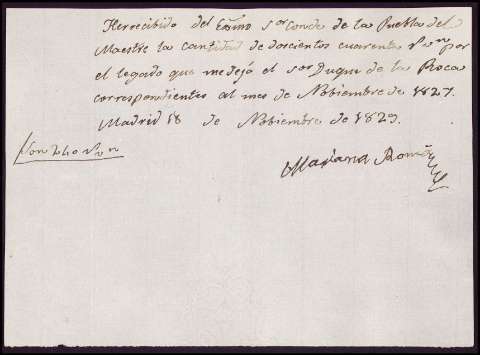 He recibido del Exmo Sor Conde de la Puebla del
Maestre la cantidad de doscientos cuarenta Rs on por
el legado que me dejó el sor Duque de la Roca
correspondientes al mes de Nobiembre de 1827.
Madrid 18 de Nobiembre de 1829.
Son 240 Rs on
Mariana Román